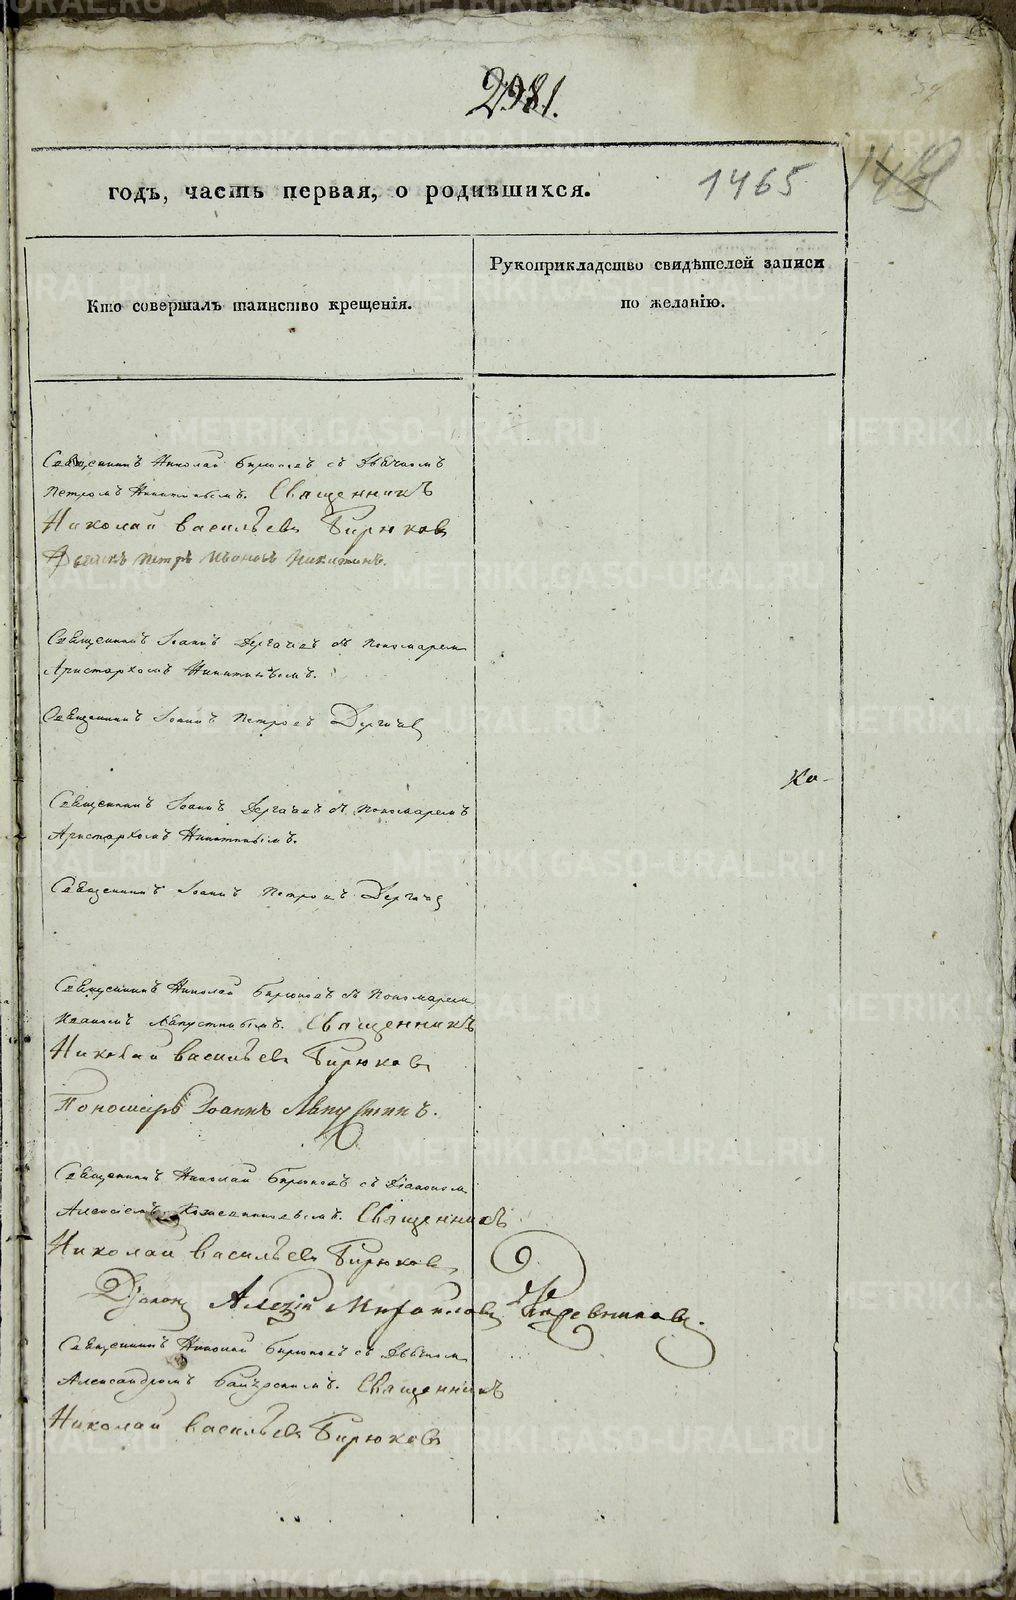 2981.
годъ, часть первая, о родившихся.
1465
Кто совершалъ таинство крещенія.
Рукоприкладство свидѣтелей записи
по желанію.
Священникъ Николай Бирюковъ съ Дьячкомъ
Петромъ Никитинымъ. Священникъ
Николай Васильевъ Бирюковъ
Дьячекъ Петръ Никитинъ.
Священникъ Іоаннъ Дергачевъ съ Пономаремъ
Аристархомъ Никитинымъ.
Священникъ Іоаннъ Петровъ Дергачевъ
Ко-
Священникъ Іоаннъ Дергачевъ съ Пономаремъ
Аристархомъ Никитинымъ.
Священникъ Іоаннъ Петровъ Дергачевъ
Священникъ Николай Бирюковъ съ Пономаремъ
Иваномъ Августинымъ. Священникъ
Николай Васильевъ Бирюковъ
Пономарь Іоаннъ Августинъ.
Священникъ Николай Бирюковъ съ Діакономъ
Алексіемъ Священникъ
Николай Васильевъ Бирюковъ
Діаконъ Алексій Михайловъ
Священникъ Николай Бирюковъ съ Дьячкомъ
Александромъ Священникъ
Николай Васильевъ Бирюковъ
METRIKI.GASO-URAL.RU